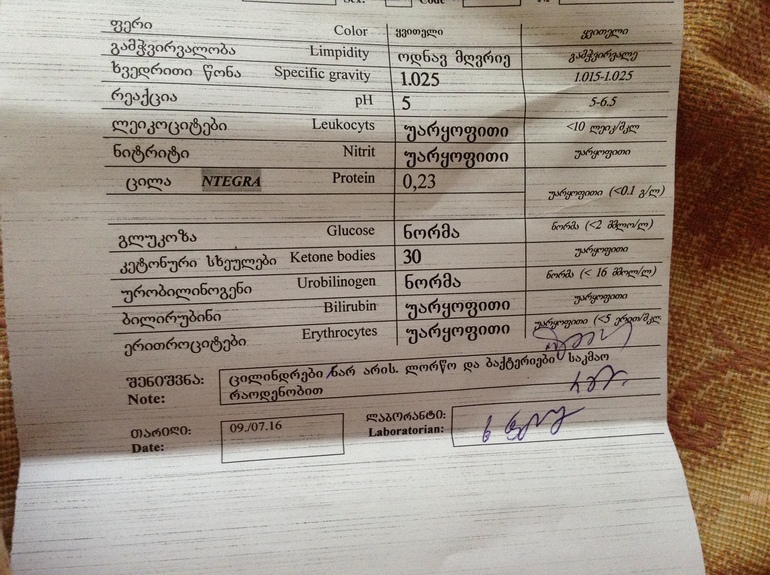 ფერი Color ყვითელი ყვითელი
გამჭვირვალობა Limpidity ოდნავ მღვრიე გამჭვირვალე
ხვედრითი წონა Specific gravity 1.025 1.015-1.025
რეაქცია pH 5 5-6.5
ლეიკოციტები Leukocyts უარყოფითი <10 ლეიკ/მკლ
ნიტრიტი Nitrit უარყოფითი უარყოფითი
ცილა NTEGRA Protein 0,23 უარყოფითი (<0.1 გ/ლ)
გლუკოზა Glucose ნორმა ნორმა (<2 მმლო/ლ)
კეტონური სხეულები Ketone bodies 30 უარყოფითი
ურობილინოგენი Urobilinogen ნორმა ნორმა (< 16 მმოლ/ლ)
ბილირუბინი Bilirubin უარყოფითი უარყოფითი
ერითროციტები Erythrocytes უარყოფითი უარყოფითი (<5 ერით/მკლ
შენიშვნა: ცილინდრები არ არის. ლორწო და ბაქტერიები საკმაო
Note: რაოდენობით
თარიღი: 09./07.16 ლაბორანტი:
Date: Laboratorian: